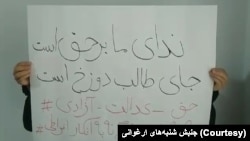 ندای ما برحق است
جای طالب دوزخ است
حق - عدالت - آزادی #
جنبش شنبه‌های ارغوانی (Courtesy)